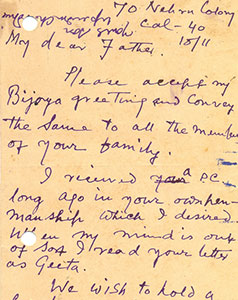 70 Nelson Colony
Cal-40
15/11
My dear Father.
Please accept my
Bijoya greeting and Convey
the Same to all the member
of your family.
I received a P.C.
long ago in your own pen-
manship which I desired
When my mind is out
of Sort I read your letter
as Geeta.
We wish to hold a